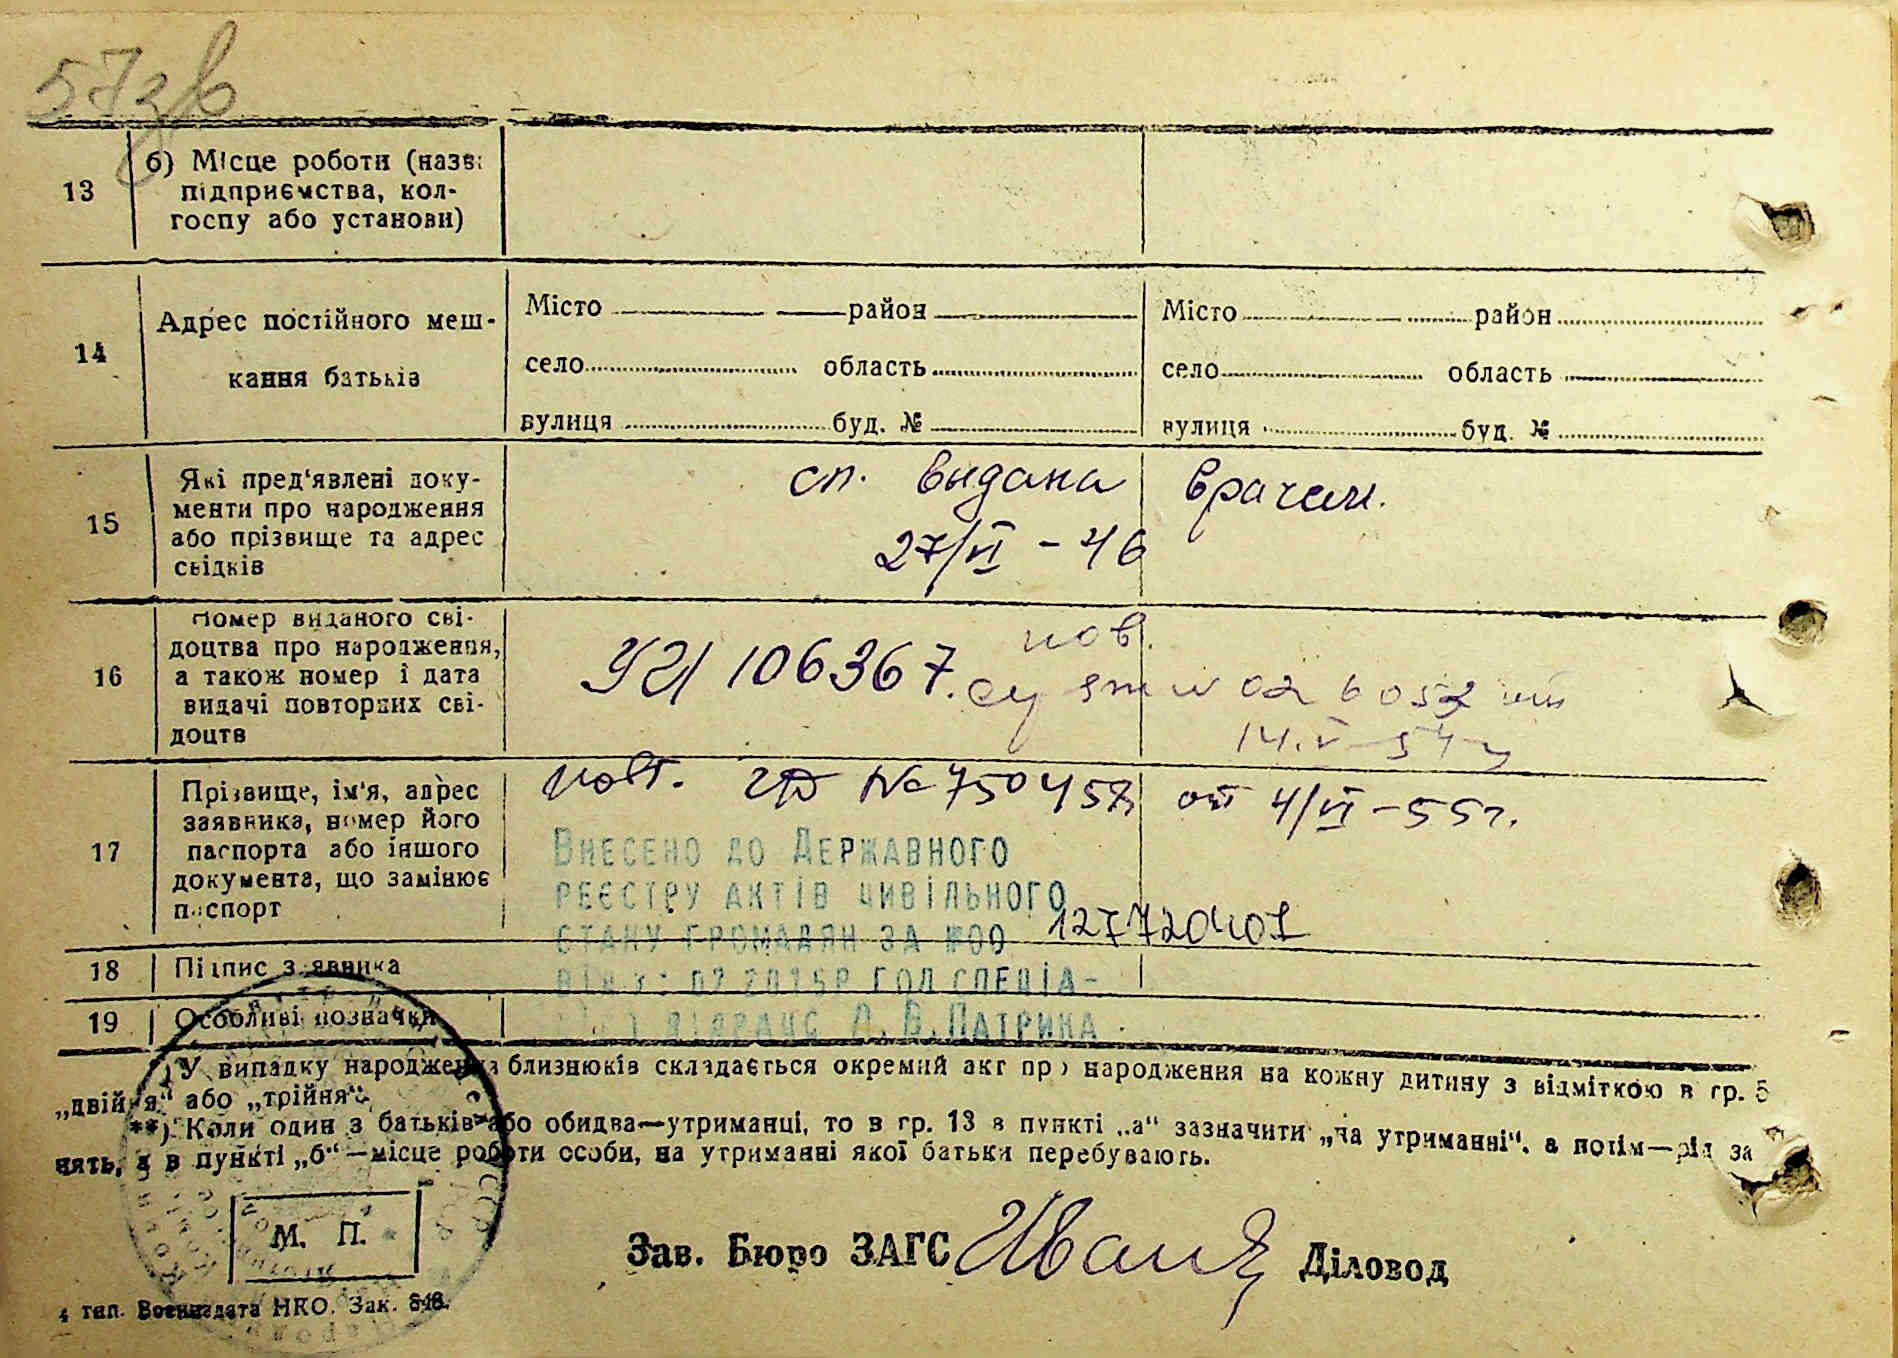 57зв
13
б) Місце роботи (назва
підприємства, кол-
госпу або установи)
14
Адрес постійного меш-
кання батьків
Місто район
село область
вулиця буд. №
Місто район
село область
вулиця буд. №
15
Які пред'явлені доку-
менти про народження
або прізвище та адрес
свідків
сп. видана врачем.
27/VI - 46
16
Номер виданого сві-
доцтва про народження,
а також номер і дата
видачі повторних сві-
доцтв
106367. пов.
№ 026052 от
14.V-54г
17
Прізвище, ім'я, адрес
заявника, номер його
паспорта або іншого
документа, що замінює
паспорт
повт. № 750457 от 4/VI-55г.
Внесено до Державного
реєстру актів цивільного
стану громадян за №00 127720401
2015р гол спеціа-
А.В.Патрика
18
Підпис заявника
19
Особливі позначки
*) У випадку народження близнюків складається окремий акт про народження на кожну дитину з відміткою в гр. 5
„двійня" або „трійня".
**) Коли один з батьків або обидва—утриманці, то в гр. 13 в пункті „а" зазначити „на утриманні", а потім—рід за
нять, а в пункті „б"—місце роботи особи, на утриманні якої батьки перебувають.
М. П.
Зав. Бюро ЗАГС Діловод
4 тип. Воениздата НКО. Зак. 848.